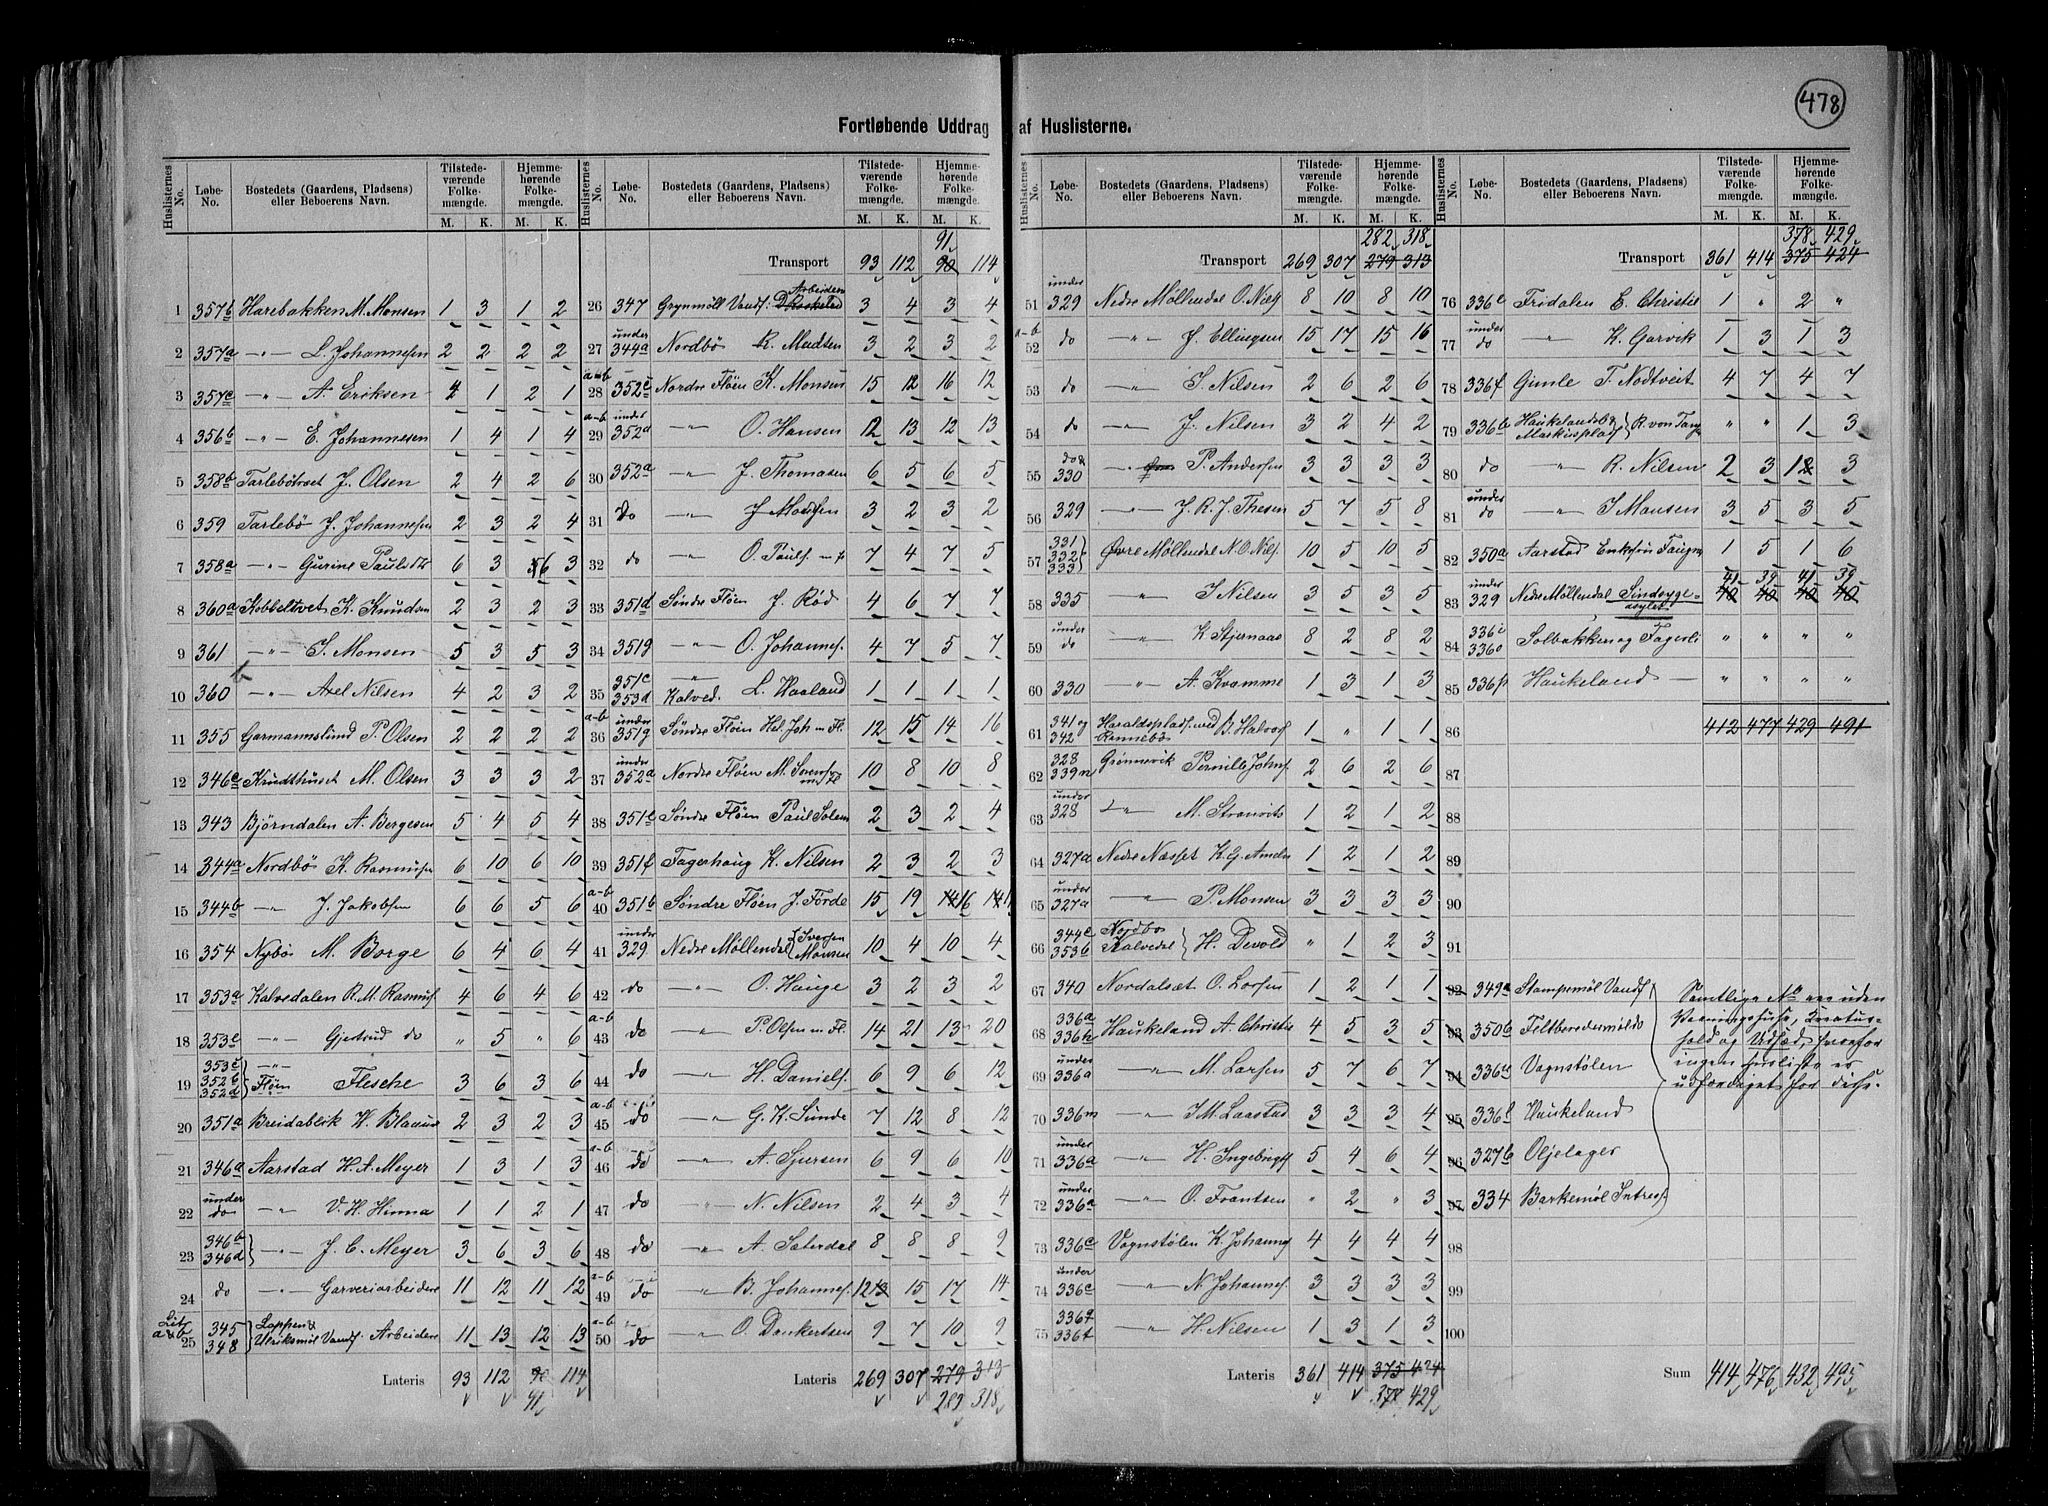 478
Fortløbende Uddrag af Huslisterne.
Huslisternes No. Løbe-No. Bostedets (Gaardens, Pladsens) eller Beboerens Navn. Tilstedeværende Folkemængde. M. K. Hjemmehørende Folkemængde. M. K.
1 357b Harebakken M. Monsen 1 3 1 2
2 357a -"- L. Johannesen 2 2 2 2
3 357c -"- A. Eriksen 2 1 2 1
4 356b -"- E. Johannesen 1 4 1 4
5 358b Tarlebötræet J. Olsen 2 4 2 6
6 359 Tarlebö J. Johannesen 2 3 2 4
7 358a -"- Gurine Paulsdtr 6 3 6 3
8 360a Kobbeltvet K. Knudsen 2 3 2 3
9 361 -"- S. Monsen 5 3 5 3
10 360b -"- Axel Nilsen 4 2 3 2
11 355 Garmannslund P. Olsen 2 2 2 2
12 346c Krudthuset M. Olsen 3 3 3 2
13 343 Björndalen A. Bergesen 5 4 5 4
14 344a Nordbö K. Rasmusen 6 10 6 10
15 344b -"- J. Jakobsen 6 6 5 6
16 354 Nybö M. Borge 6 4 6 4
17 353a Kalvedalen R. M. Rasmus. 4 6 4 6
18 353c -"- Gjertrud do " 5 " 6
19 353c 352b 352d -"- Flöen Flesche 3 6 3 6
20 351a Breidablik W. Blauuw 2 3 2 3
21 346a Aarstad H. A. Meyer 1 3 1 3
22 under do -"- V. H. Hinna 1 1 2 1
23 346b 346d -"- J. C. Meyer 3 6 3 6
24 do -"- Garveriarbeidere 11 12 11 12
Lit. a & b 25 345 348 Lappen & Ulriksmöl Vandf. Arbeidere 11 13 12 13
Lateris 93 112 90 114
91
91
Transport 93 112 90 114
26 347 Grynmöll Vandf. Arbeidere 3 4 3 4
27 under 344a Nordbö R. Madsen 3 2 3 2
a-b 28 352c Nordre Flöen K. Monsen 15 12 16 12
a-b 29 under 352d -"- O. Hansen 12 13 12 13
30 352a -"- J. Thomasen 6 5 6 5
31 do -"- J. Madsen 3 2 3 2
32 do -"- O. Pauls. m fl 7 4 7 5
33 351d Söndre Flöen J. Röd 4 6 7 7
34 351g -"- O. Johannes. 4 7 5 7
35 351c 353d -"- Kalved. L. Haaland 1 1 1 1
a-b 36 under 351g Söndre Flöen Hel. Joh m Fl. 12 15 14 16
37 under 352a Nordre Flöen M. Sörens. med Fl 10 8 10 8
38 351e Söndre Flöen Paul Solem 2 3 2 4
39 351f Fagerhaug K. Nilsen 2 3 2 3
a-b 40 351b Söndre Flöen J. Förde 15 19 16
41 under 329 Nedre Möllendal Iversen Monsen 10 4 10 4
42 do -"- O. Hauge 3 2 3 2
a-b 43 do -"- P. Olsen m Fl. 14 21 13 20
44 do -"- H. Daniels. 6 9 6 12
a-b 45 do -"- G. K. Sunde 7 12 8 12
a-b 46 do -"- A. Sjursen 6 9 6 10
47 do -"- N. Nilsen 2 4 3 4
48 do -"- A. Saterdal 8 8 8 9
a-b 49 do -"- B. Johannes. 12 15 17 14
a-b 50 do -"- O. Dankertsen 9 7 10 9
Lateris 269 307 279 313
282 318
282 318
Transport 269 307 279 313
51 under 329 Nedre Möllendal O. Nils. 8 10 8 10
a-b 52 do -"- J. Ellingsen 15 17 15 16
53 do -"- S. Nilsen 2 6 2 6
54 do -"- J. Nilsen 3 2 4 2
55 do & 330 -"- P. Andersen 3 3 3 3
56 329 -"- J. R. J. Thesen 5 7 5 8
57 331 332 333 Övre Möllendal N. O. Nils. 10 5 10 5
58 335 -"- S. Nilsen 3 5 3 5
59 under do -"- K. Stjernaas 8 2 8 2
60 330 -"- A. Kvamme 1 3 1 3
61 341 og 342 Haraldsplads. ved Rennebö B. Halvors. 1 " 1 1
62 328 339n Grönnevik Pernille Johns. 2 6 2 6
63 under 328 -"- M. Stranvits 1 2 1 2
64 327a Nedre Næsset K. G. Ameln 1 2 1 2
65 under 327a -"- P. Monsen 3 3 3 3
66 344c 353b Nordbö Kalvedal H. Devold " 1 2 3
67 340 Nordalsæt O. Larsen 1 2 1 1
68 336a 336h Haukeland A. Christie 4 5 3 5
69 under 336a -"- M. Larsen 5 7 6 7
70 336m -"- I. M. Laastad 3 3 3 4
71 under 336a -"- H. Ingebrigts. 5 4 6 4
72 under 336a -"- O. Frantsen " 2 " 3
73 336c Vognstölen K. Johannes. 4 4 4 4
74 under 336c -"- N. Johannes. 3 3 3 3
75 336q 336t -"- H. Nilsen 1 3 1 3
Lateris 361 414 375 424
378 429
378 429
Transport 361 414 375 424
76 336e Fridalen E. Christie 1 " 2 "
77 under do -"- K. Garvik 1 3 1 3
78 336f Gimle T. Nödtveit 4 7 4 7
79 336b Haukelandsb. Markusplads R. von Tangen " " 1 3
80 do -"- R. Nilsen 2 3 3
81 under do -"- S. Mansen 3 5 3 5
82 350a Aarstad 1 5 1 6
83 under 329 Nedre Möllendal Sindssygeasylet 41 39 41 39
40 40 40 40
84 336i 336o Solbakken og Fagerli " " " "
85 336p Haukeland — " " " "
86 412 477 429 491
87
88
89
90
91
92 349a Stampemöl Vandf.
93 350b Feltberedermölle
94 336u Vognstölen
95 336l Haukeland
96 327b Oljelager
97 334 Barkemöl Intress.
Samtlige No ere uden Beboningshuse, Kreaturhold og Udsæd, hvorfor ingen husliste er udfærdiget for disse.
98
99
100
Sum 414 476 432 495